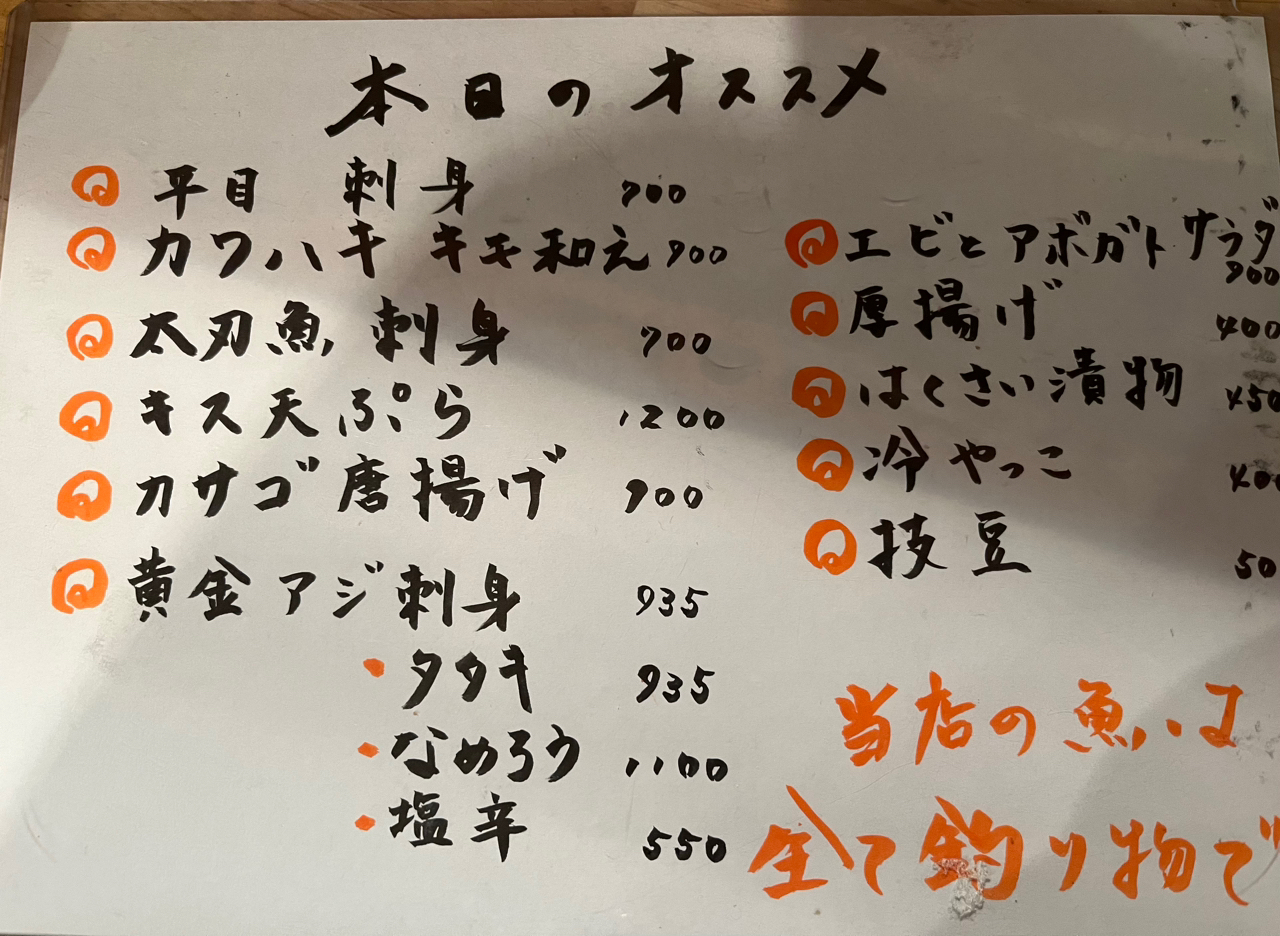 本日のオススメ
平目 刺身 900
カワハキ キモ和え 900
太刃魚 刺身 900
キス天ぷら 1200
カサゴ唐揚げ 900
黄金アジ刺身 935
・タタキ 935
・なめろう 1100
・塩辛 550
エビとアボガトサラダ
900
厚揚げ 400
はくさい漬物 450
冷やっこ 400
枝豆 50
当店の魚は
全て釣り物で